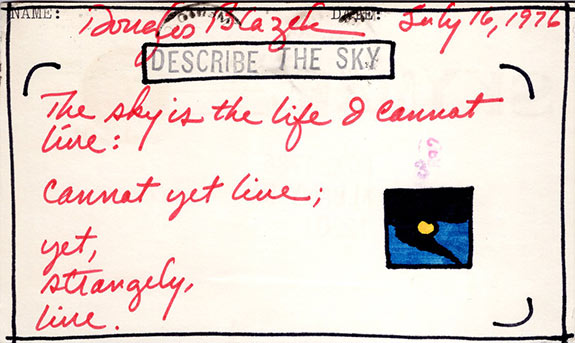 NAME: Douglas Blazek DATE: July 16, 1976
DESCRIBE THE SKY
The sky is the life I cannot
live:
cannot yet live;
yet,
strangely,
live.